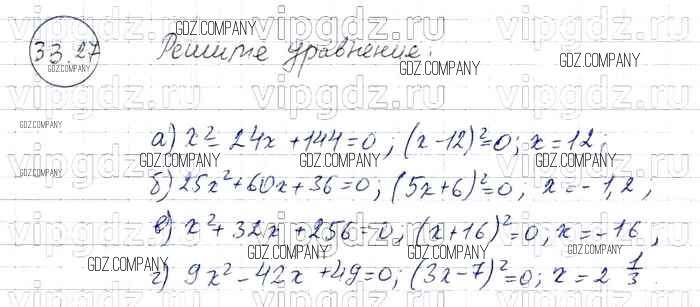 33.27 Решите уравнение:
а) x² - 24x + 144 = 0; (x - 12)² = 0; x = 12;
б) 25x² + 60x + 36 = 0; (5x + 6)² = 0; x = -1,2;
в) x² + 32x + 256 = 0; (x + 16)² = 0; x = -16;
г) 9x² - 42x + 49 = 0; (3x - 7)² = 0; x = 2 1/3
vipgdz.ru
GDZ.COMPANY